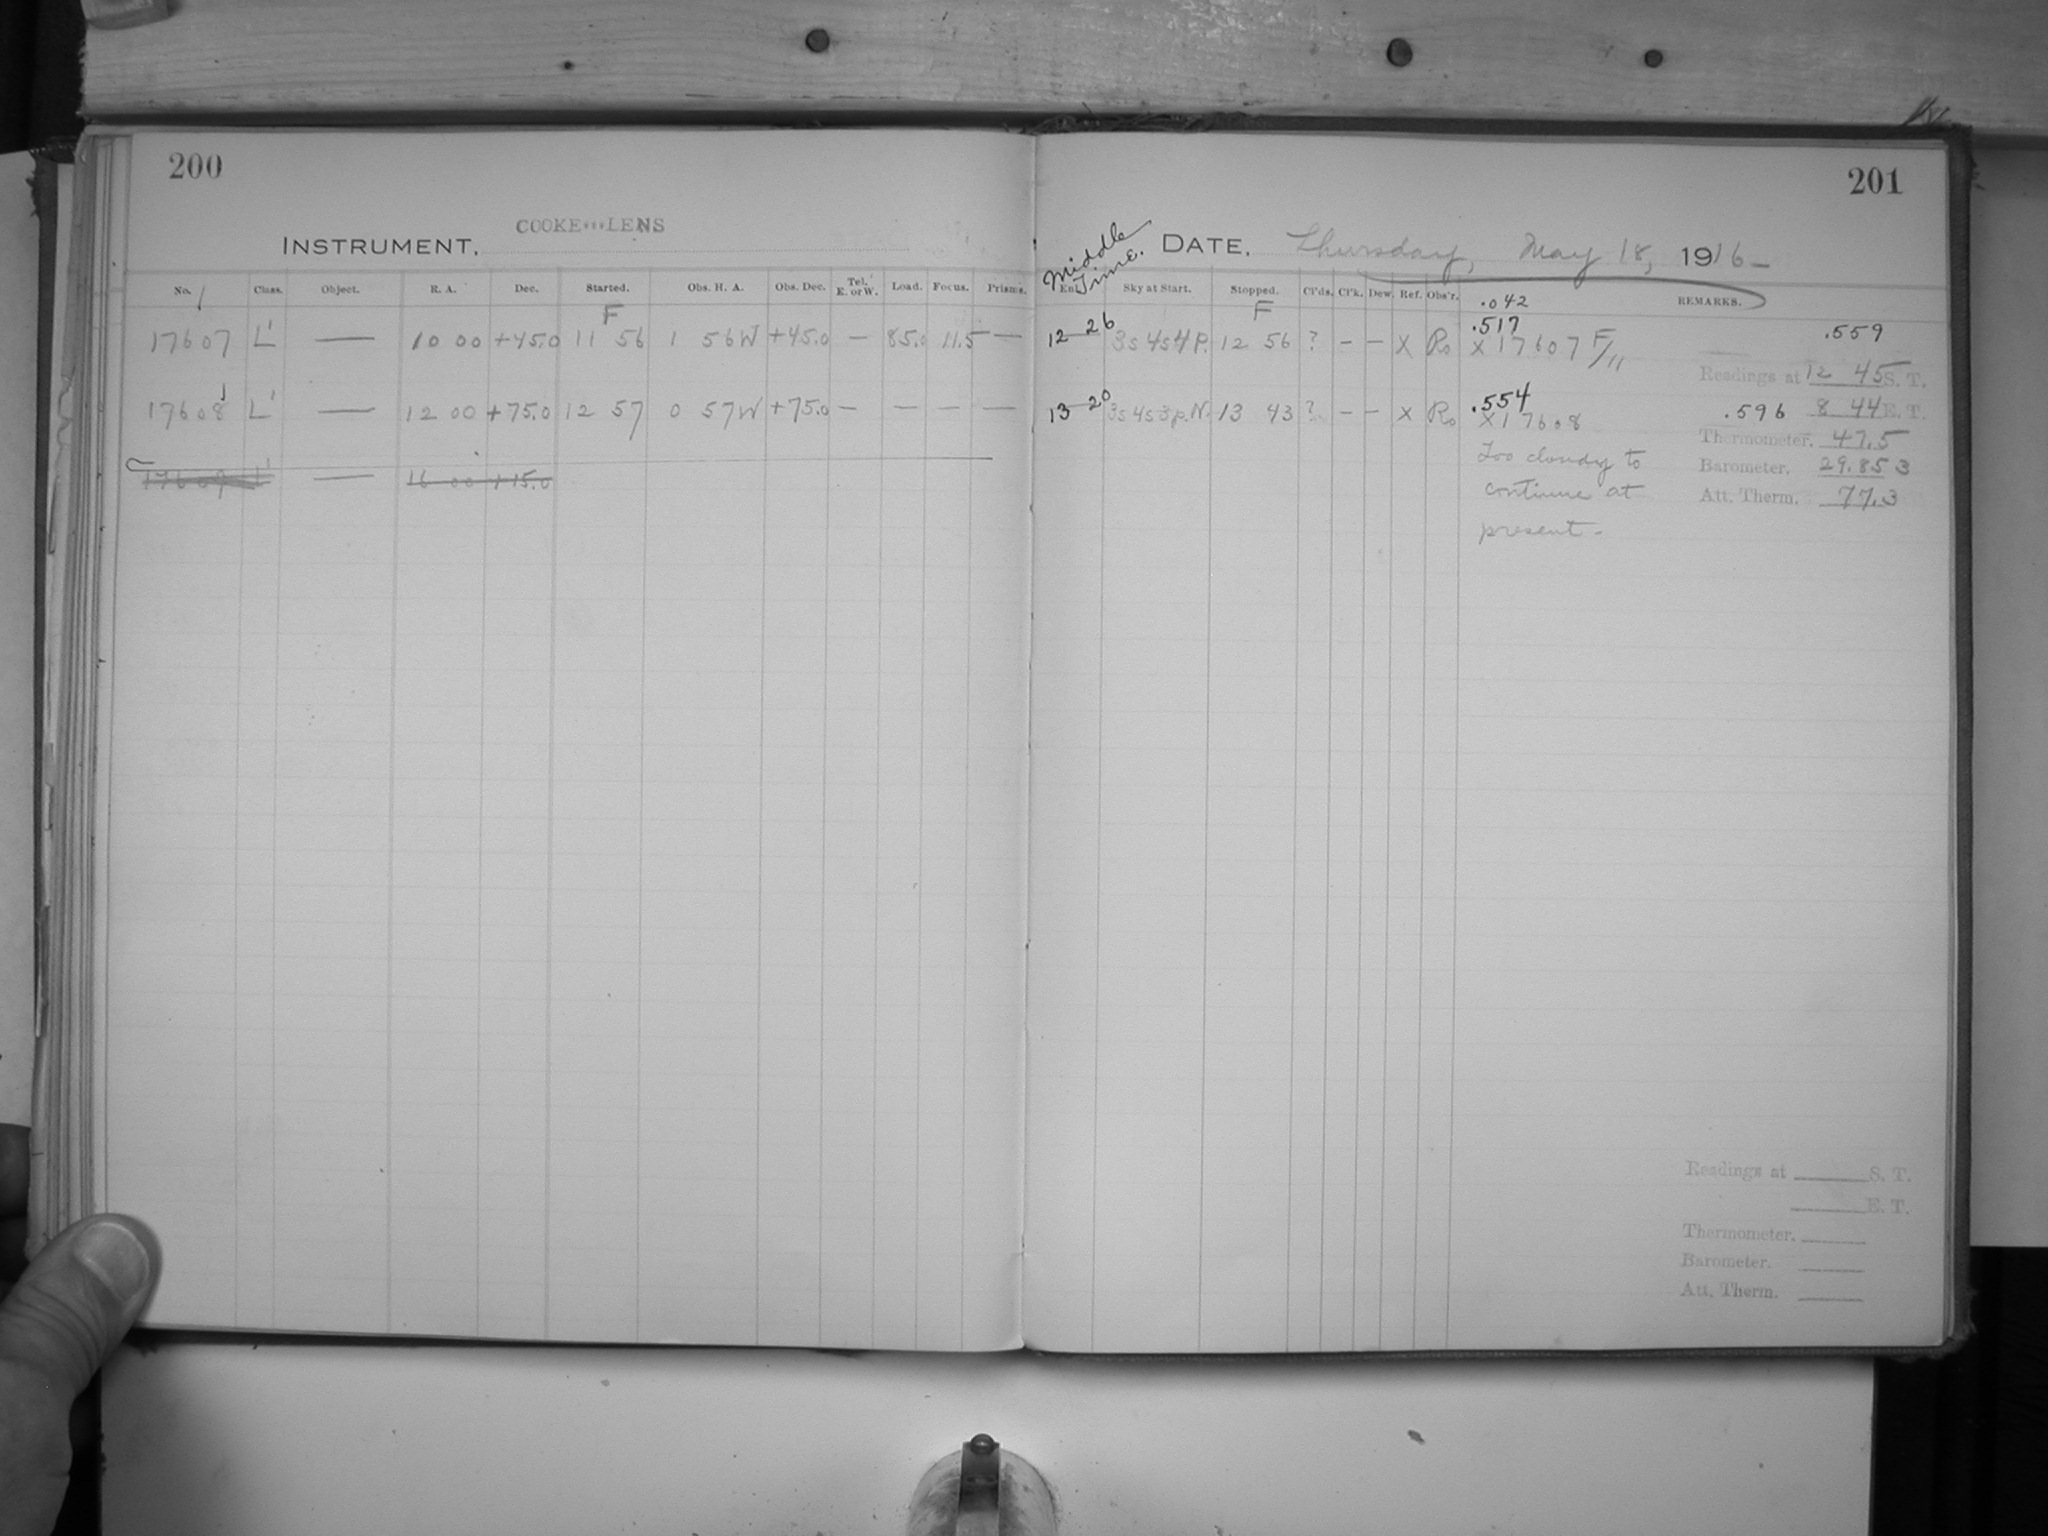 200
COOKE---LENS
INSTRUMENT,
No. Class. Object. R. A. Dec. Started. Obs. H. A. Obs. Dec. Tel. E. or W. Load. Focus. Prisms.
F
17607 L' — 10 00 +45.0 11 56 1 56W +45.0 — 85.0 11.5 —
17608 L' — 12 00 +75.0 12 57 0 57W +75.0 — — — —
17609 L' — 16 00 +15.0
201
Middle Time.
DATE, Thursday, May 18, 1916-
Sky at Start. Stopped. Cl'ds. Cl'k. Dew. Ref. Obs'r. REMARKS.
F .042
.517 .559
12 26 3s 4s 4 P. 12 56 ? — — X Ro X 17607 F/11
Readings at 12 45 S. T.
.554
13 20 3s 4s 3 p. N. 13 43 ? — — X Ro X17608 .596 8 44 E. T.
Thermometer. 47.5
Too cloudy to
Barometer. 29.853
continue at
Att. Therm. 77.3
present-
Readings at S. T.
E. T.
Thermometer.
Barometer.
Att. Therm.